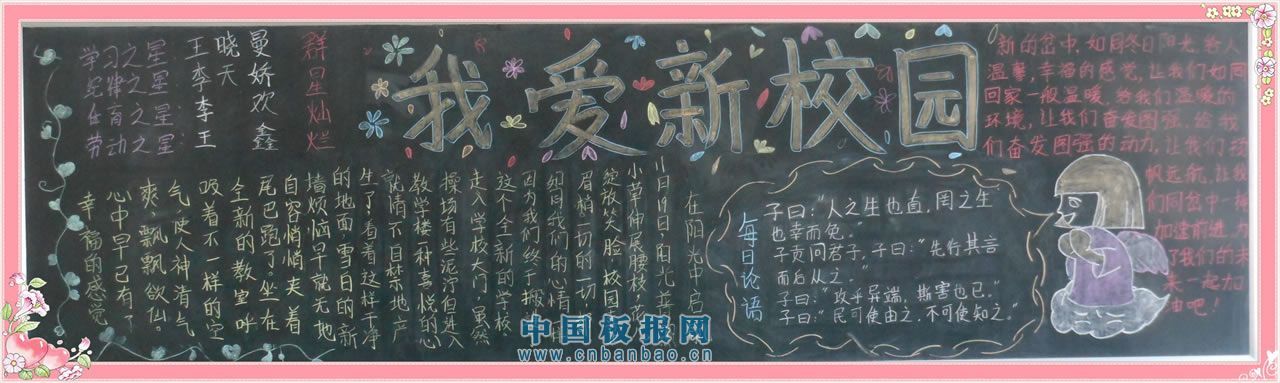 我爱新校园
群星灿烂
学习之星
纪律之星
体育之星
劳动之星
王晓曼
李天娇
李欢
王鑫
在阳光中启
11月19日,阳光
小草伸展腰枝,花
绽放笑脸,校园
眉梢,一切的一切
如同我们的心情一样
因为我们终于搬
这个全新的学校
走入学校大门,虽然
操场有些泥泞但进入
教学楼一种喜悦的心
就情不自禁地产
生了,看着这样干净
的地面,雪白的新
墙烦恼早就无地
自容悄悄夹着
尾巴跑了。坐在
全新的教室呼
吸着不一样的空
气,使人神清气
爽,飘飘欲仙。
心中早已有了
幸福的感觉
每日论语
子曰:“人之生也直,罔之生
也幸而免。”
子贡问君子,子曰:“先行其言
而后从之。”
子曰:“攻乎异端,斯害也已。”
子曰:“民可使由之,不可使知之。”
新的岔中,如同冬日阳光,给人
温馨,幸福的感觉,让我们如同
回家一般温暖,给我们温暖的
环境,让我们奋发图强,给我
们奋发图强的动力,让我们
帆远航,让我
们同岔中一样
加速前进,为
了我们的未
来一起加
油吧!
中国板报网
www.cnbanbao.cn